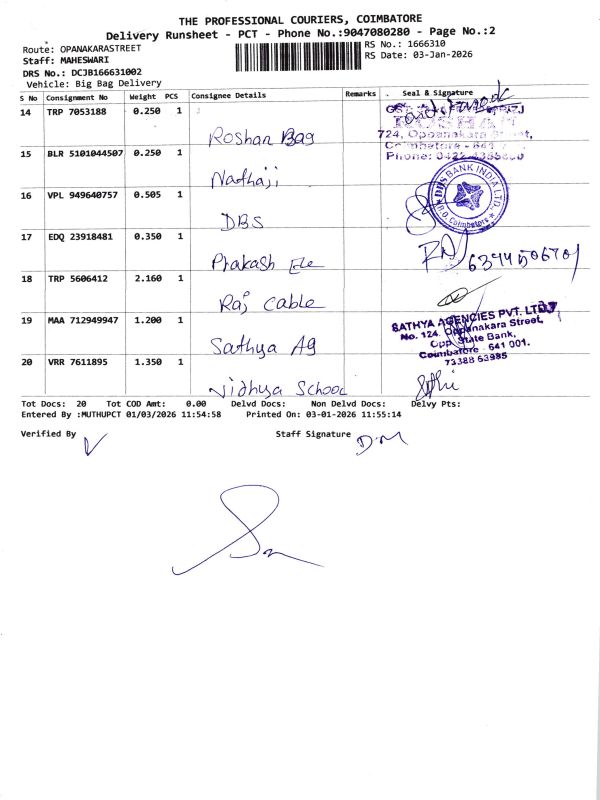 THE PROFESSIONAL COURIERS, COIMBATORE
Delivery Runsheet - PCT - Phone No.:9047080280 - Page No.:2
Route: OPANAKARASTREET
RS No.: 1666310
Staff: MAHESWARI
RS Date: 03-Jan-2026
DRS No.: DCJB166631002
Vehicle: Big Bag Delivery
S No Consignment No Weight PCS Consignee Details Remarks Seal & Signature
14 TRP 7053188 0.250 1
Roshan Bag
724, Oppanakara Street,
Coimbatore - 641
Phone: 0422
15 BLR 5101044507 0.250 1
Nathaji
16 VPL 949640757 0.505 1
DBS
DBS BANK INDIA LTD.
Coimbatore
17 EDQ 23918481 0.350 1
Prakash Ele
18 TRP 5606412 2.160 1
Raj Cable
19 MAA 712949947 1.200 1
Sathya Ag
SATHYA AGENCIES PVT. LTD.
No. 124, Oppanakara Street,
Opp. State Bank,
Coimbatore - 641 001.
73388 63985
20 VRR 7611895 1.350 1
Vidhya School
Tot Docs: 20 Tot COD Amt: 0.00 Delvd Docs: Non Delvd Docs: Delvy Pts:
Entered By :MUTHUPCT 01/03/2026 11:54:58 Printed On: 03-01-2026 11:55:14
Verified By
Staff Signature D.M